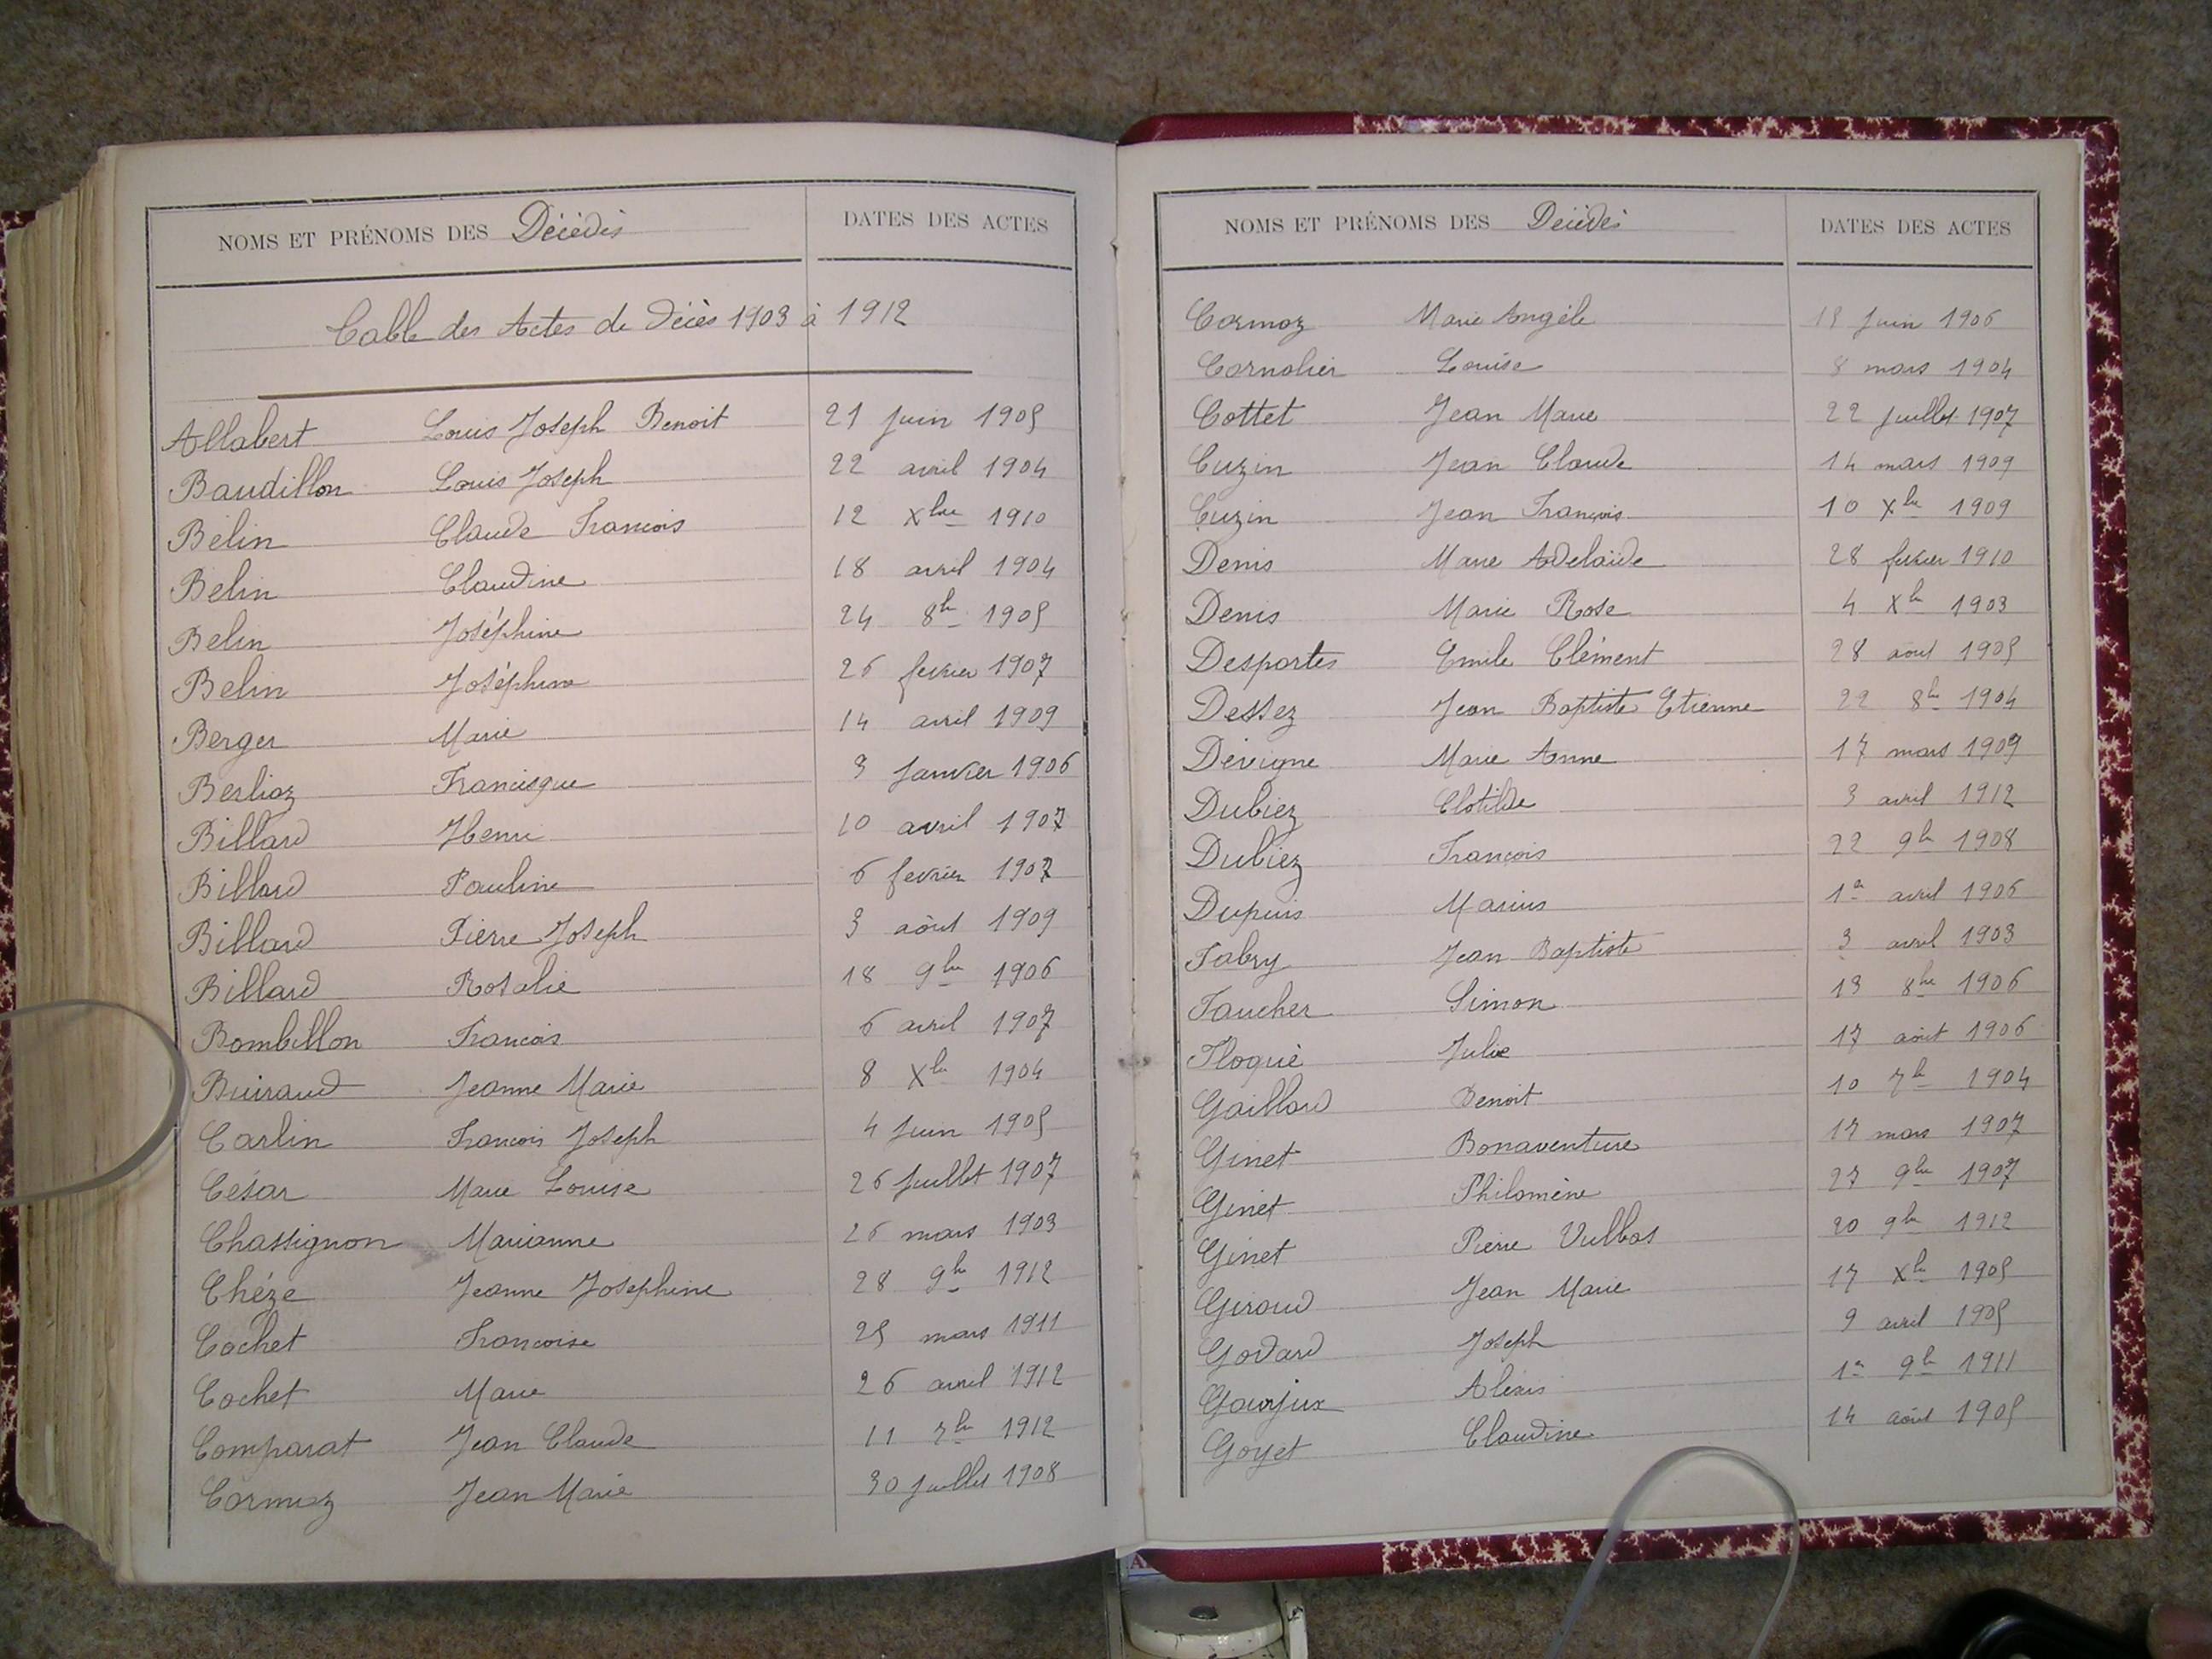 NOMS ET PRÉNOMS DES Décédés DATES DES ACTES
Table des Actes de Décès 1903 à 1912
Allabert Louis Joseph Benoit 21 juin 1905
Baudillon Louis Joseph 22 avril 1904
Belin Claude Francois 12 Xbre 1910
Belin Claudine 18 avril 1904
Belin Joséphine 24 8bre 1905
Belin Joséphine 26 fevrier 1907
Berger Marie 14 avril 1909
Berlioz Francisque 3 janvier 1906
Billard Henri 10 avril 1907
Billard Pauline 6 fevrier 1907
Billard Pierre Joseph 3 août 1909
Billard Rosalie 18 9bre 1906
Bombillon Francois 6 avril 1907
Buiraud Jeanne Marie 8 Xbre 1904
Carlin Francois Joseph 4 juin 1905
César Marie Louise 26 juillet 1907
Chassignon Marianne 26 mars 1903
Chéze Jeanne Josephine 28 9bre 1912
Cochet Francoise 25 mars 1911
Cochet Marie 26 avril 1912
Comparat Jean Claude 11 7bre 1912
Cormoz Jean Marie 30 juillet 1908
NOMS ET PRÉNOMS DES Décédés DATES DES ACTES
Cormoz Marie Angèle juin 1906
Cornolier Louise 8 mars 1904
Cottet Jean Marie 22 juillet 1907
Cuzin Jean Claude 14 mars 1909
Cuzin Jean François 10 Xbre 1909
Denis Marie Adelaïde 28 fevrier 1910
Denis Marie Rose 4 Xbre 1903
Desportes Emile Clément 28 août 1905
Dessez Jean Baptiste Etienne 22 8bre 1904
Dévigne Marie Anne 17 mars 1909
Dubiez Clotilde 3 avril 1912
Dubiez Francois 22 9bre 1908
Dupuis Marius 1er avril 1906
Fabry Jean Baptiste 3 avril 1903
Faucher Simon 13 8bre 1906
Floquè Julie 17 août 1906
Gaillard Benoit 10 7bre 1904
Ginet Bonaventure 17 mars 1907
Ginet Philomène 27 9bre 1907
Ginet Pierre Vulbas 20 9bre 1912
Giraud Jean Marie 17 Xbre 1905
Godard Joseph 9 avril 1905
Gourjux Alexis 1er 9bre 1911
Goyet Claudine 14 août 1905